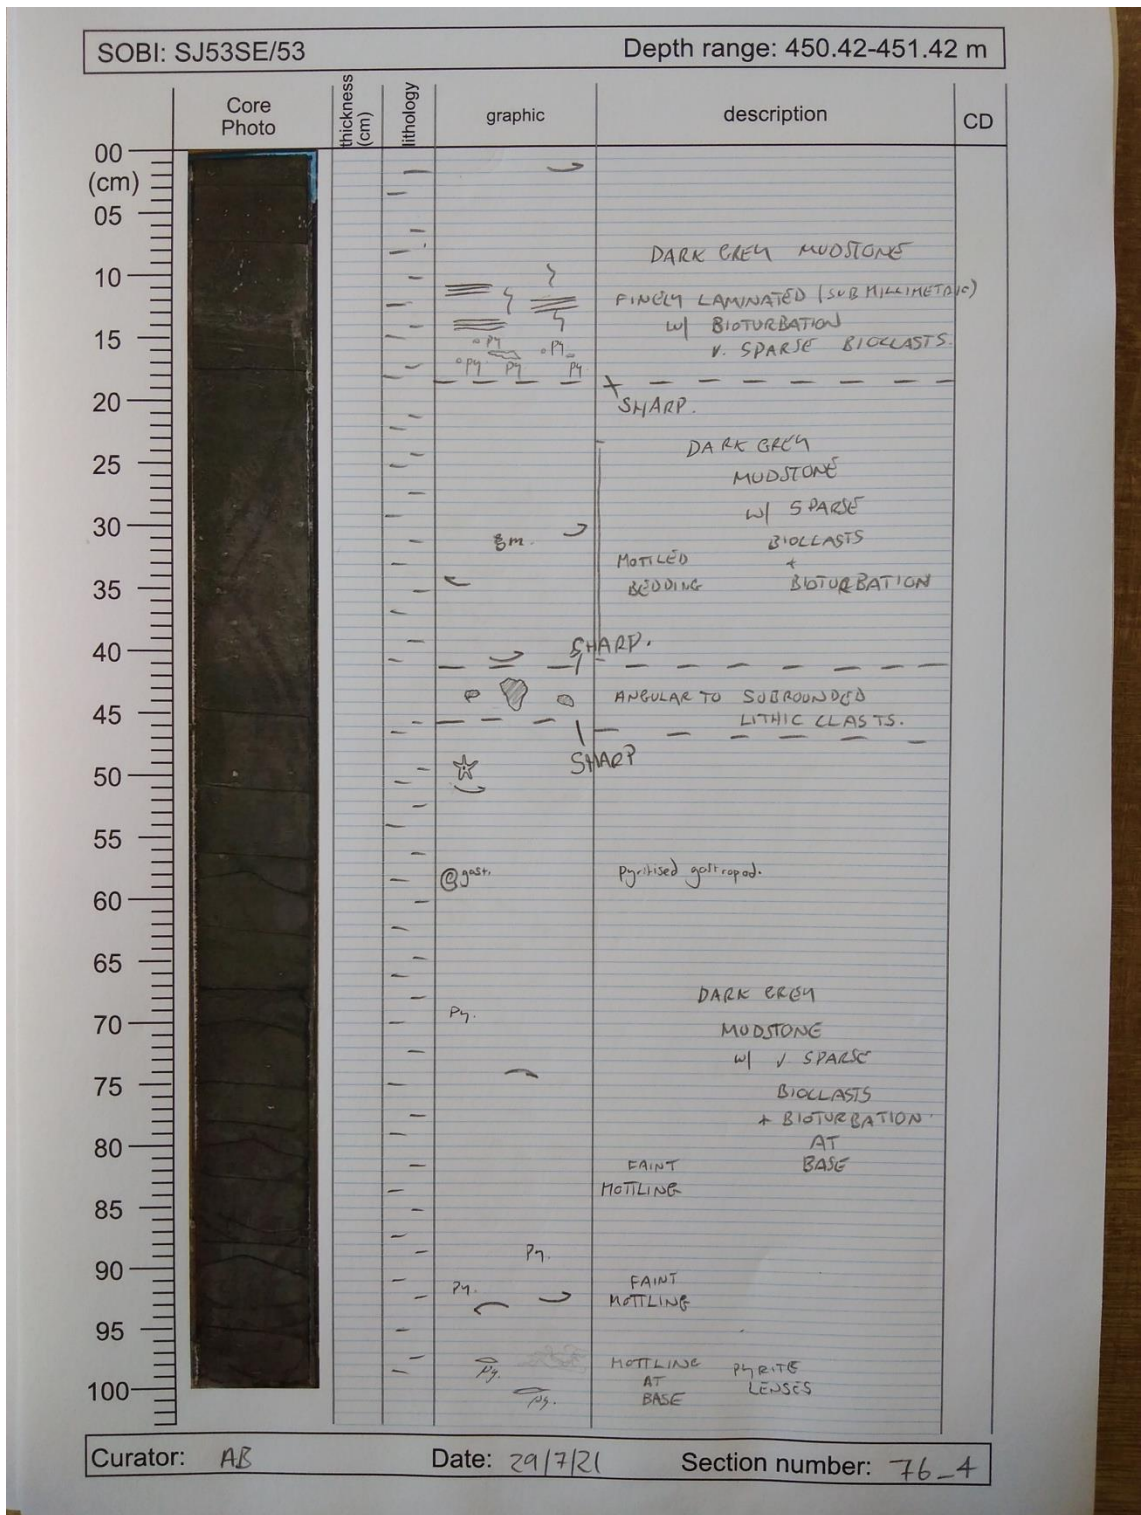 SOBI: SJ53SE/53
Depth range: 450.42-451.42 m
Core Photo
thickness (cm)
lithology
graphic
description
CD
00
(cm)
05
10
15
20
25
30
35
40
45
50
55
60
65
70
75
80
85
90
95
100
DARK GREY MUDSTONE
FINELY LAMINATED (SUBMILLIMETRIC)
w/ BIOTURBATION
v. SPARSE BIOCLASTS.
Py Py
Py Py Py
SHARP.
DARK GREY
MUDSTONE
w/ SPARSE
BIOCLASTS
+
BIOTURBATION
MOTTLED
BEDDING
SHARP.
ANGULAR TO SUBROUNDED
LITHIC CLASTS.
SHARP
gast.
Pyritised gastropod.
DARK GREY
MUDSTONE
w/ v SPARSE
BIOCLASTS
+ BIOTURBATION
AT
BASE
Py.
FAINT
MOTTLING
Py.
Py.
FAINT
MOTTLING
Py.
Py.
MOTTLING
AT
BASE
PYRITE
LENSES
Curator: AB
Date: 29/7/21
Section number: 76_4